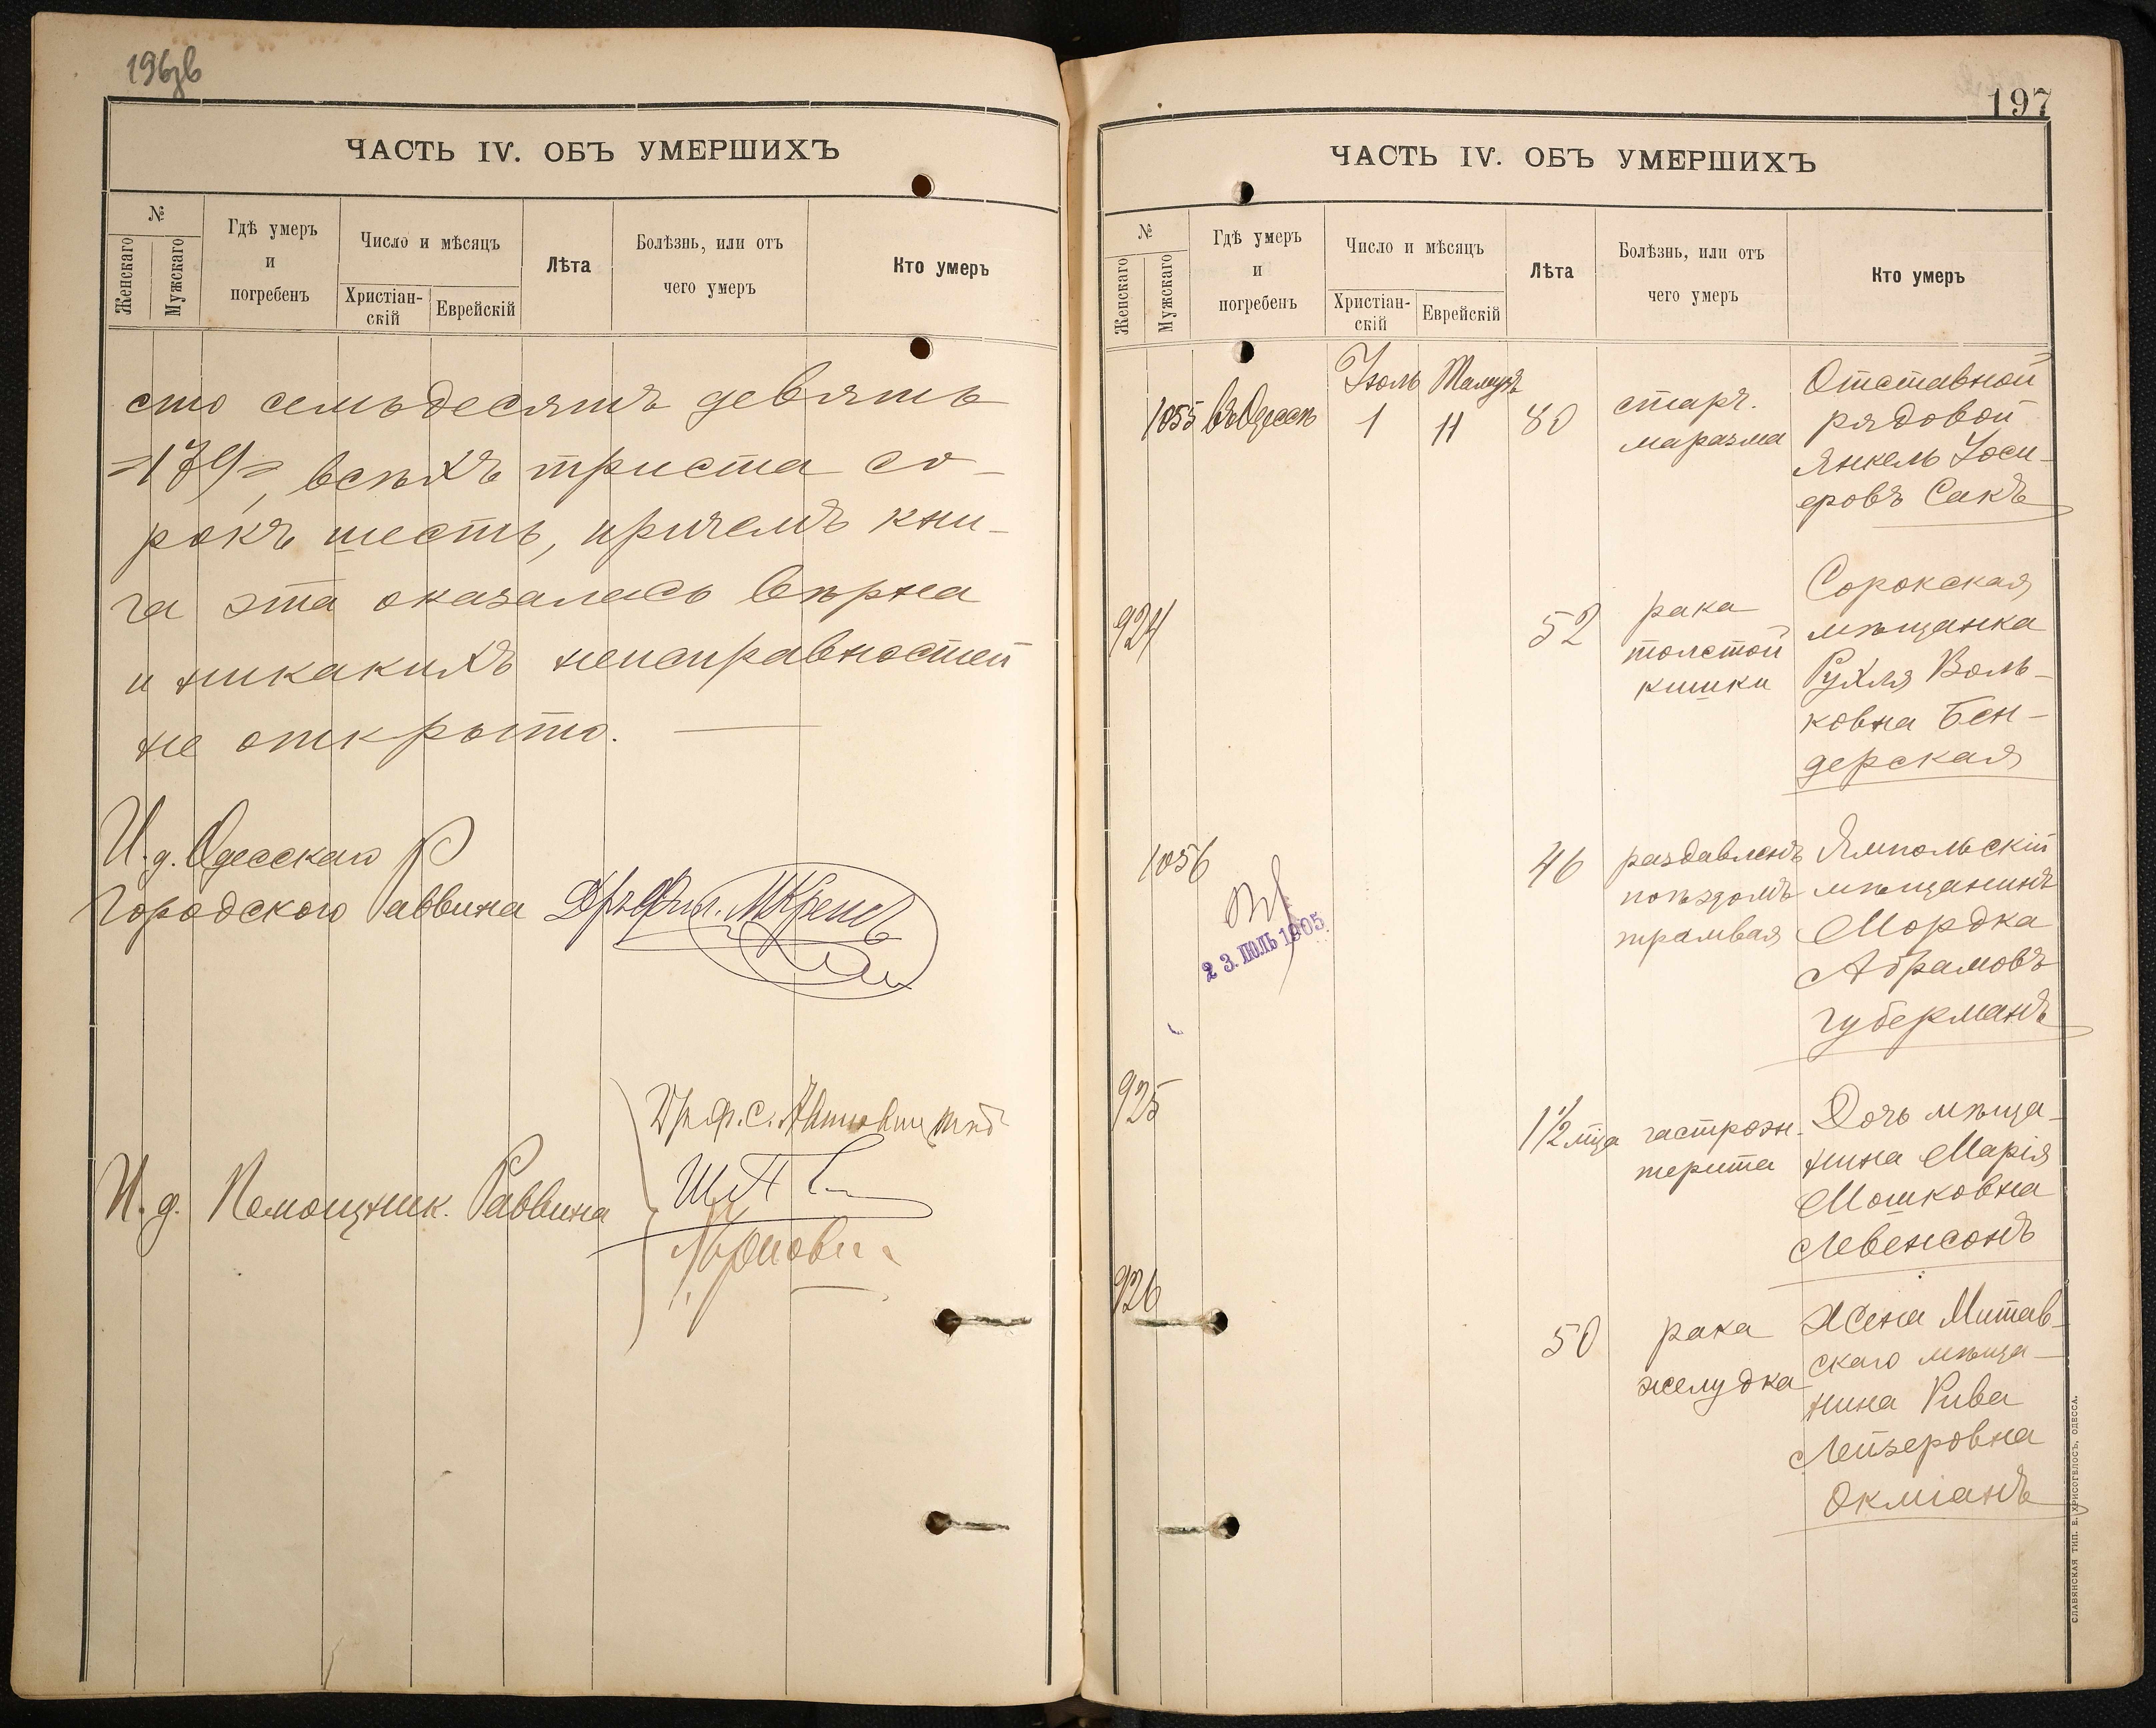 196зв
ЧАСТЬ IV. ОБЪ УМЕРШИХЪ
№
Женскаго
Мужскаго
Гдѣ умеръ
и
погребенъ
Число и мѣсяцъ
Христіан-
скій
Еврейскій
Лѣта
Болѣзнь, или отъ
чего умеръ
Кто умеръ
сто семьдесятъ девять
=179=, всѣхъ триста со-
рокъ шесть, причемъ кни-
га эта оказалась вѣрна
и никакихъ неисправностей
не открыто.
И. д. Одесскаго
Городского Раввина
И. д. Помощник. Раввина
197
ЧАСТЬ IV. ОБЪ УМЕРШИХЪ
№
Женскаго
Мужскаго
Гдѣ умеръ
и
погребенъ
Число и мѣсяцъ
Христіан-
скій
Еврейскій
Лѣта
Болѣзнь, или отъ
чего умеръ
Кто умеръ
Іюль Тамузъ
1055 въ Одессѣ 1 11 80
стар.
маразма
Отставной
рядовой
Янкель Іоси-
еровъ Сакъ
924
52
рака
толстой
кишки
Сорокская
мѣщанка
Рухля Воль-
ковна Бен-
дерская
1056
23. ІЮЛЬ 1905.
46
раздавленъ
поѣздомъ
трамвая
Ямпольскій
мѣщанинъ
Мордка
Абрамовъ
Губерманъ
925
1½ мца
гастроэн-
терита
Дочь мѣща-
нина Марія
Мошковна
Левенсонъ
926
50
рака
желудка
Жена Митав-
скаго мѣща-
нина Рива
Лейзеровна
Окміанъ
СЛАВЯНСКАЯ ТИП. Е. ХРИСОГЕЛОСЪ, ОДЕССА.